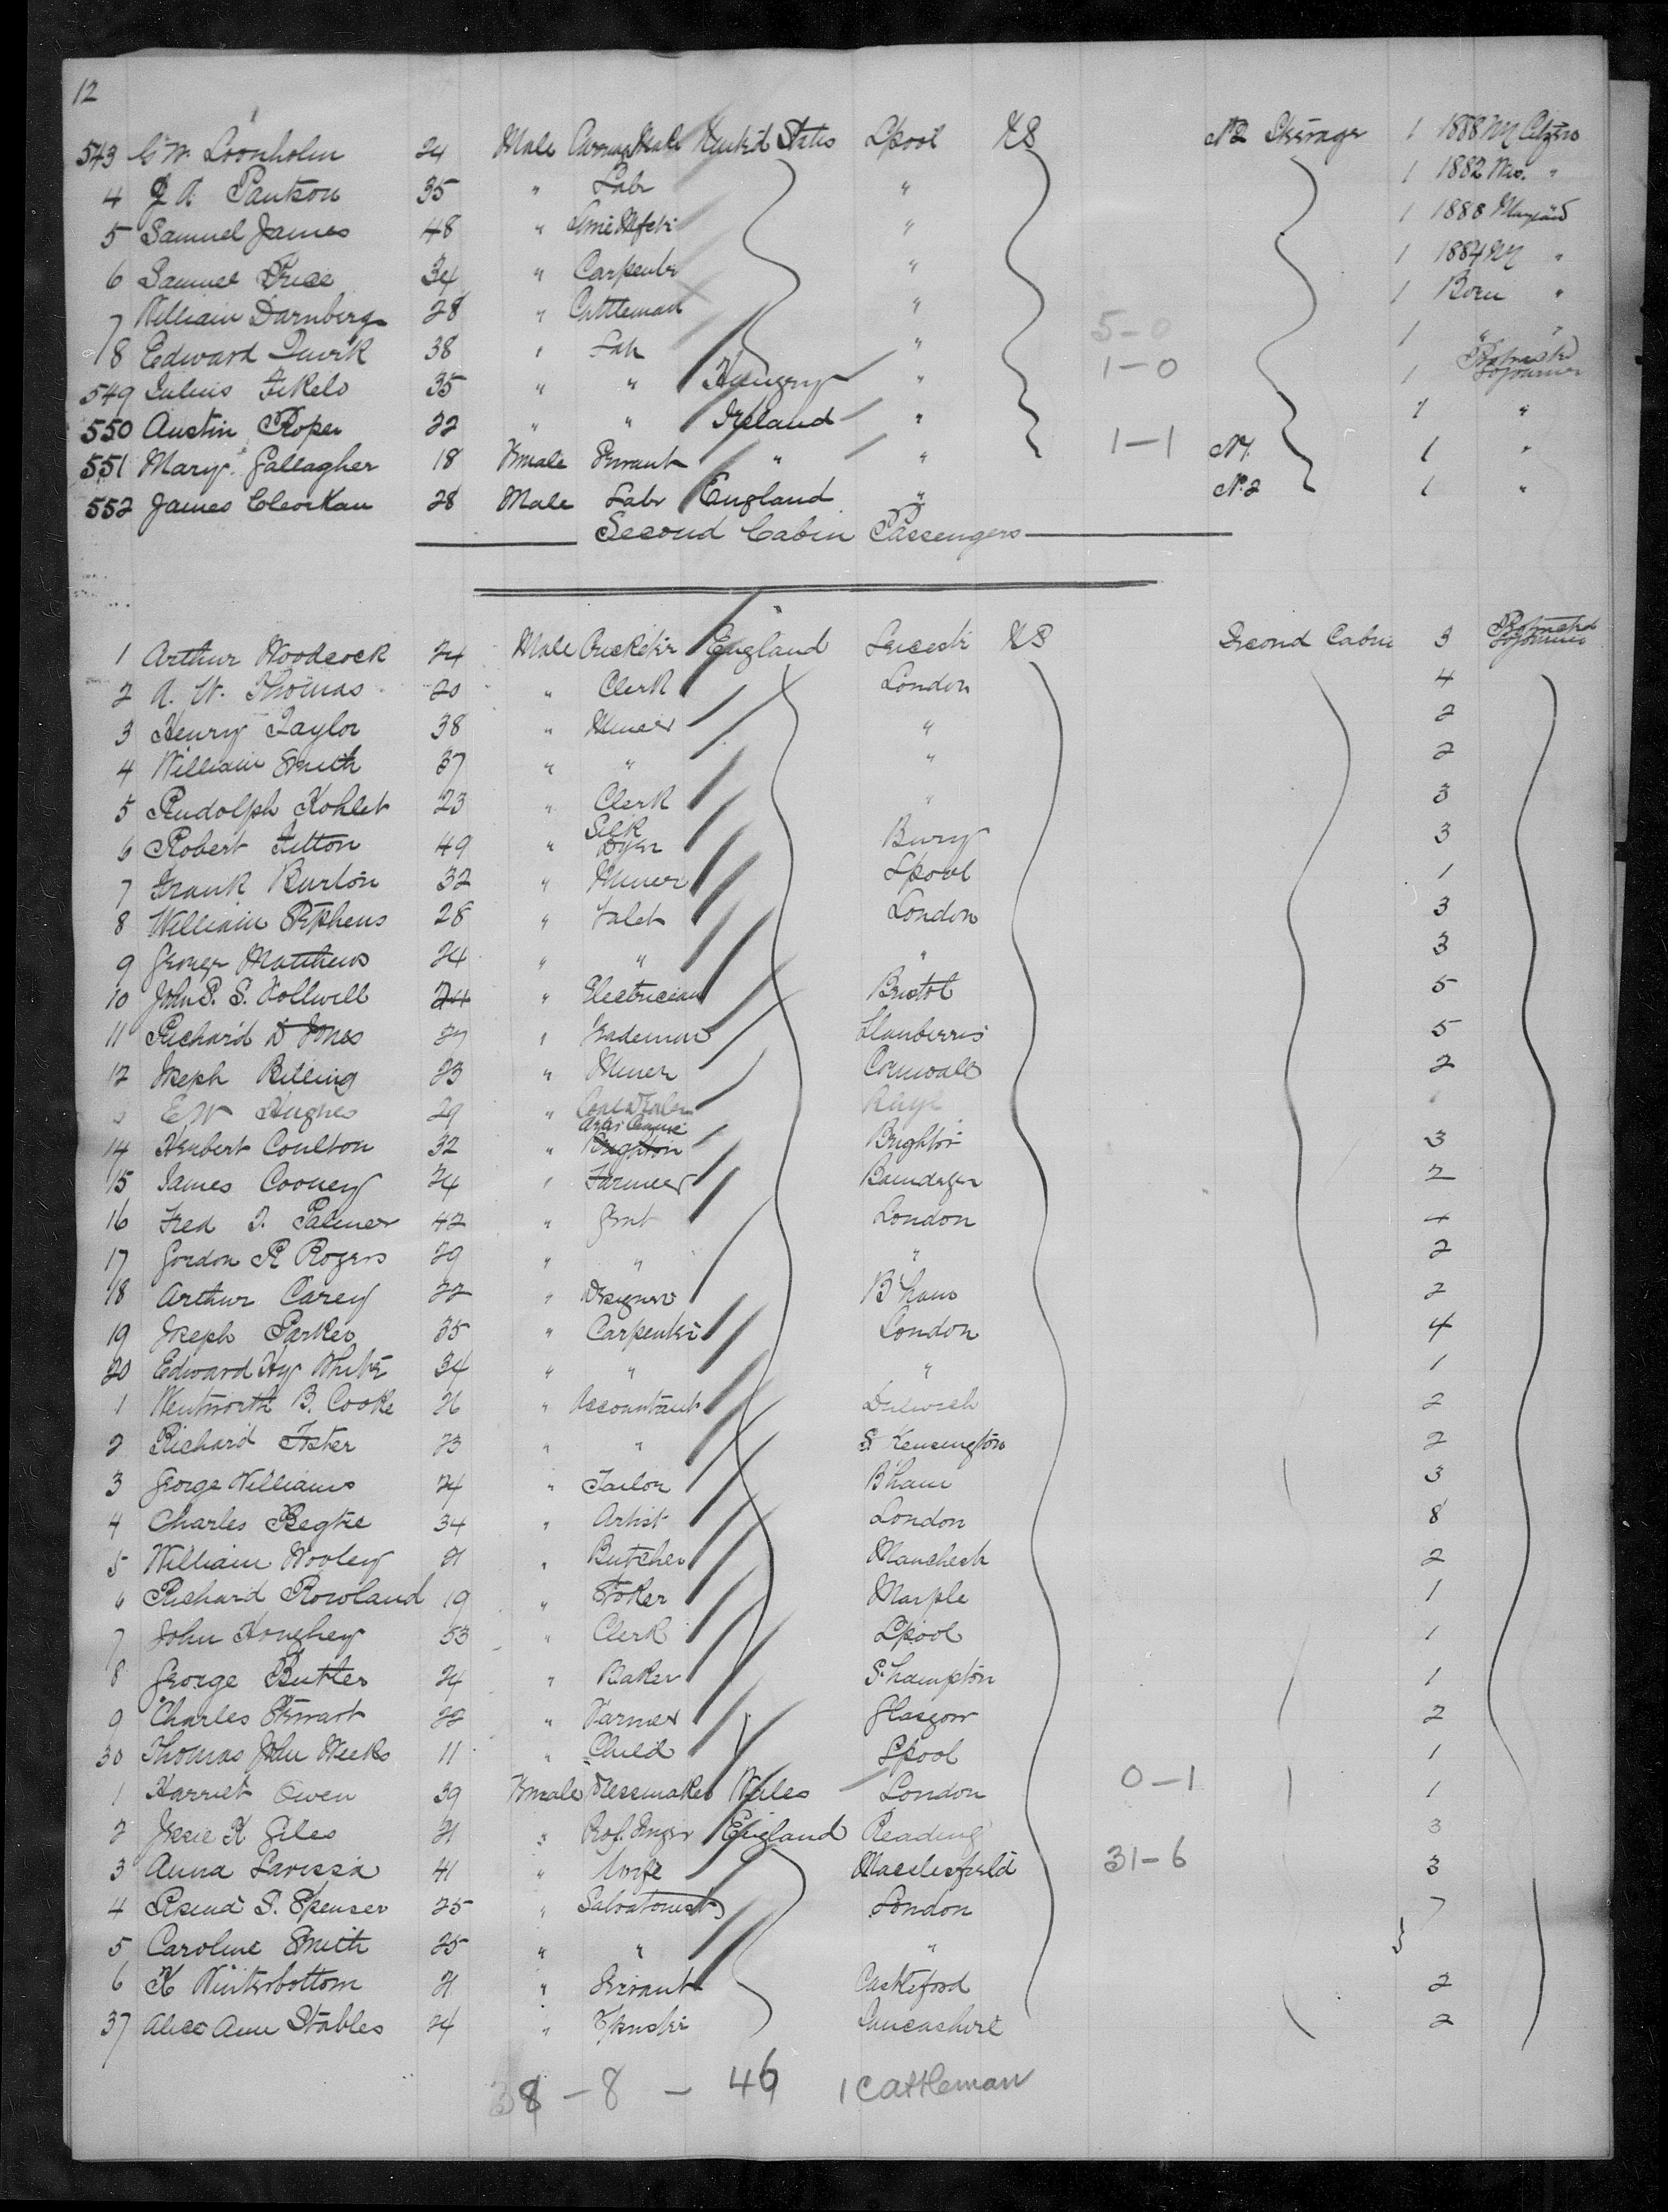 12
543 24 Male United States Lpool US No 2 Steerage 1 1888 NY Citizen
4 35 " Labr " 1 1882 "
5 Samuel James 48 " " 1 1888 Maryland
6 Samuel Price 34 " Carpenter " 1 1884 NY "
7 William Darnberg 28 " Cattleman " 1 Born "
5-0
8 Edward Quirk 38 " Labr " 1 " "
1-0
549 Julius 35 " " Hungry " 1 Protracted Sojourner
550 Austin Roper 22 " " Ireland " 1 "
551 Mary Gallagher 18 Female Servant " " 1-1 1 "
552 James 28 Male Labr England " No 2 1 "
Second Cabin Passengers
1 Arthur Woodcock 24 Male Cricketer England Leicester US Second Cabin 3 Protracted Sojourner
2 A. W. Thomas 20 " Clerk London 4
3 Henry Taylor 38 " Miner " 2
4 William Smith 37 " " " 2
5 Rudolph Kohlet 23 " Clerk " 3
6 Robert Fitton 49 " Silk Dyer Bury 3
7 Frank Burton 32 " Miner Lpool 1
8 William Stephens 28 " Valet London 3
9 George Matthews 24 " " " 3
10 John P. S. 24 " Electrician Bristol 5
11 Richard D Jones 27 " Llanberris 5
12 Joseph Billing 23 " Miner Cornwall 2
E W Hughes 29 " Rhyl
14 Herbert Coulton 32 " Brighton Brighton 3
15 James Cooney 24 " Farmer 2
16 Fred J. Palmer 42 " Gent London 4
17 Gordon R Rogers 29 " " " 2
18 Arthur Carey 22 " Designer B'ham 2
19 Joseph Parker 35 " Carpenter London 4
20 Edward Hy White 34 " " " 1
1 Wentworth B. Cooke 26 " Accountant Dulwich 2
2 Richard Foster 23 " " S. Kensington 2
3 George Williams 24 " Tailor B'ham 3
4 Charles 34 " Artist London 8
5 William Wooley 21 " Butcher Manchestr 2
6 Richard Rowland 19 " Stoker Marple 1
7 John Houghey 53 " Clerk Lpool 1
8 George Butler 24 " Baker S'hampton 1
9 Charles Stewart 22 " Farmer Glasgow 2
30 Thomas John Weeks 11 " Child Lpool 1
1 Harriet Owen 39 Female Dressmaker Wales London 0-1 1
2 Jessie K Giles 21 " England Reading 3
3 Anna 41 " Wife Macclesfield 31-6 3
4 S. Spenser 25 " Salvationist London 7
5 Caroline Smith 25 " " "
6 K Winterbottom 21 " Servant Castleford 2
37 Alice Ann Stables 24 " Spinster Lancashire 2
38 - 8 - 46 1 cattleman